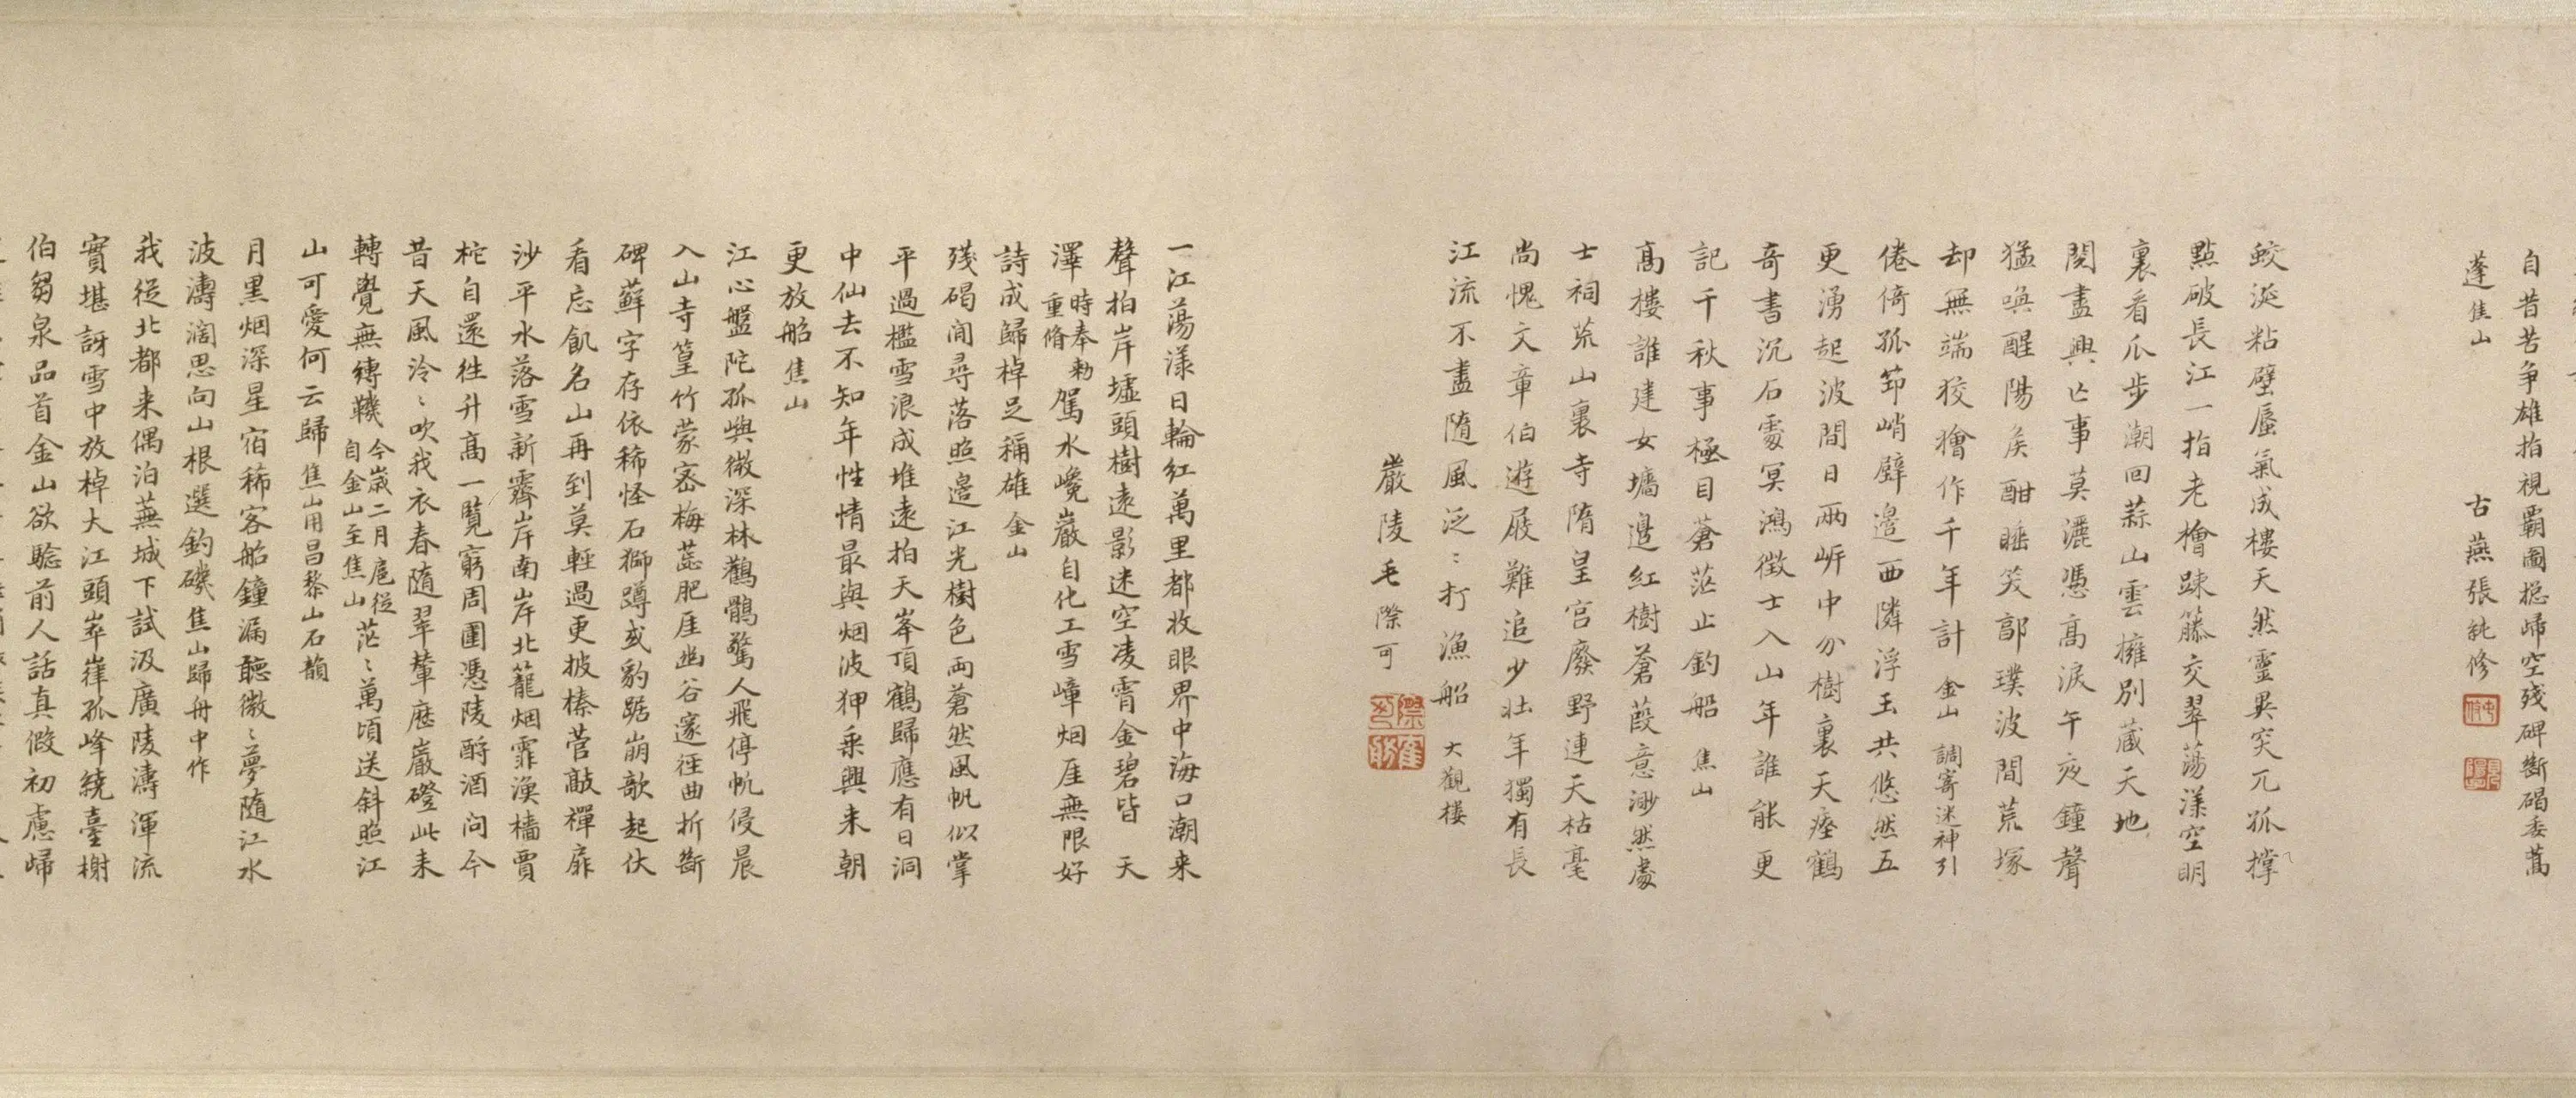 自昔苦争雄指視霸圖捴歸空殘碑斷碣委蒿
蓬 焦山
古燕張純修
蛟涎粘壁蜃氣成樓天然靈異突兀孤撐
點破長江一指老檜踈籐交翠蕩漾空明
裏看瓜步潮回蒜山雲擁別藏天地
閱盡興亡事莫灑憑高淚午夜鐘聲
猛喚醒陽矦酣睡笑郭璞波間荒塚
却無端狡獪作千年計 金山 調寄迷神引
倦倚孤筇峭壁邉西隣浮玉共悠然五
更湧起波間日兩岍中分樹裏天瘞鶴
奇書沉石處冥鴻徵士入山年誰能更
記千秋事極目蒼茫止釣船 焦山
髙樓誰建女墻邉紅樹蒼葭意渺然處
士祠荒山裏寺隋皇宫廢野連天枯毫
尚愧文章伯遊屐難追少壮年獨有長
江流不盡随風泛〻打漁船 大觀樓
嚴陵毛際可
一江蕩漾日輪紅萬里都收眼界中海口潮来
聲拍岸墟頭樹遠影迷空凌霄金碧皆 天
澤 時奉勅重脩 駕水巉巖自化工雪嶂烟厓無限好
詩成歸棹足稱雄 金山
殘碣閒尋落照邉江光樹色兩蒼然風帆似掌
平過檻雪浪成堆遠拍天峯頂鶴歸應有日洞
中仙去不知年性情最與烟波狎乗興来朝
更放船 焦山
江心盤陀孤嶼微深林鸛鶻驚人飛停帆侵晨
入山寺篁竹蒙密梅蕋肥厓幽谷邃徑曲折斷
碑蘚字存依稀怪石獅蹲或豹踞崩欹起伏
看忘飢名山再到莫輕過更披榛菅敲禪扉
沙平水落雪新霽岸南岸北籠烟霏漁檣賈
柁自還徃升髙一覽窮周圍憑陵酹酒问今
昔天風泠〻吹我衣春随翠輦歷巖磴此来
轉覺無縛鞿 今歲二月扈從自金山至焦山 茫〻萬頃送斜照江
山可愛何云歸 焦山用昌黎山石韻
月黒烟深星宿稀客船鐘漏聽微〻夢随江水
波濤濶思向山根選釣磯 焦山歸舟中作
我從北都来偶泊蕪城下試汲廣陵濤渾流
實堪訝雪中放棹大江頭崒嵂孤峰繞臺榭
伯芻泉品首金山欲騐前人話真假初慮歸